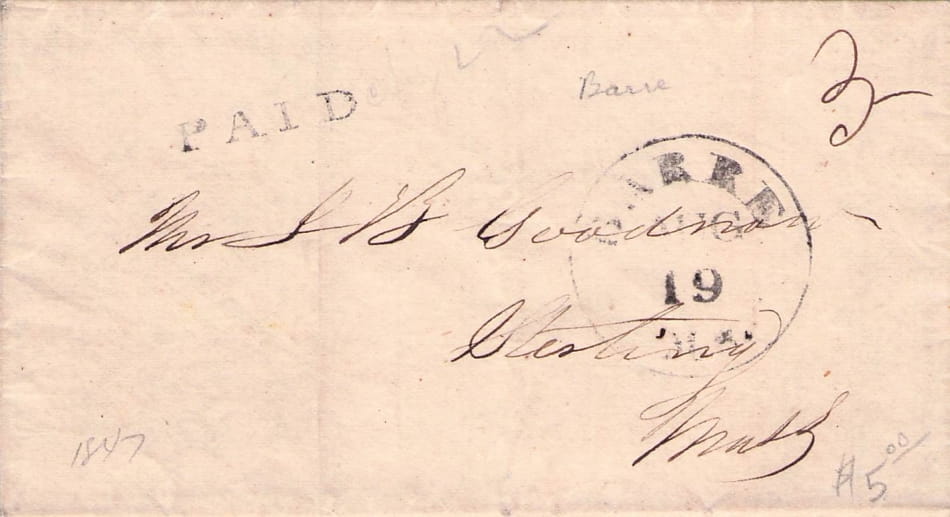 Barre
3
PAID
BARRE
AUG
19
Mr J B Goodnow
Sterling
Mass
1847
$5.00